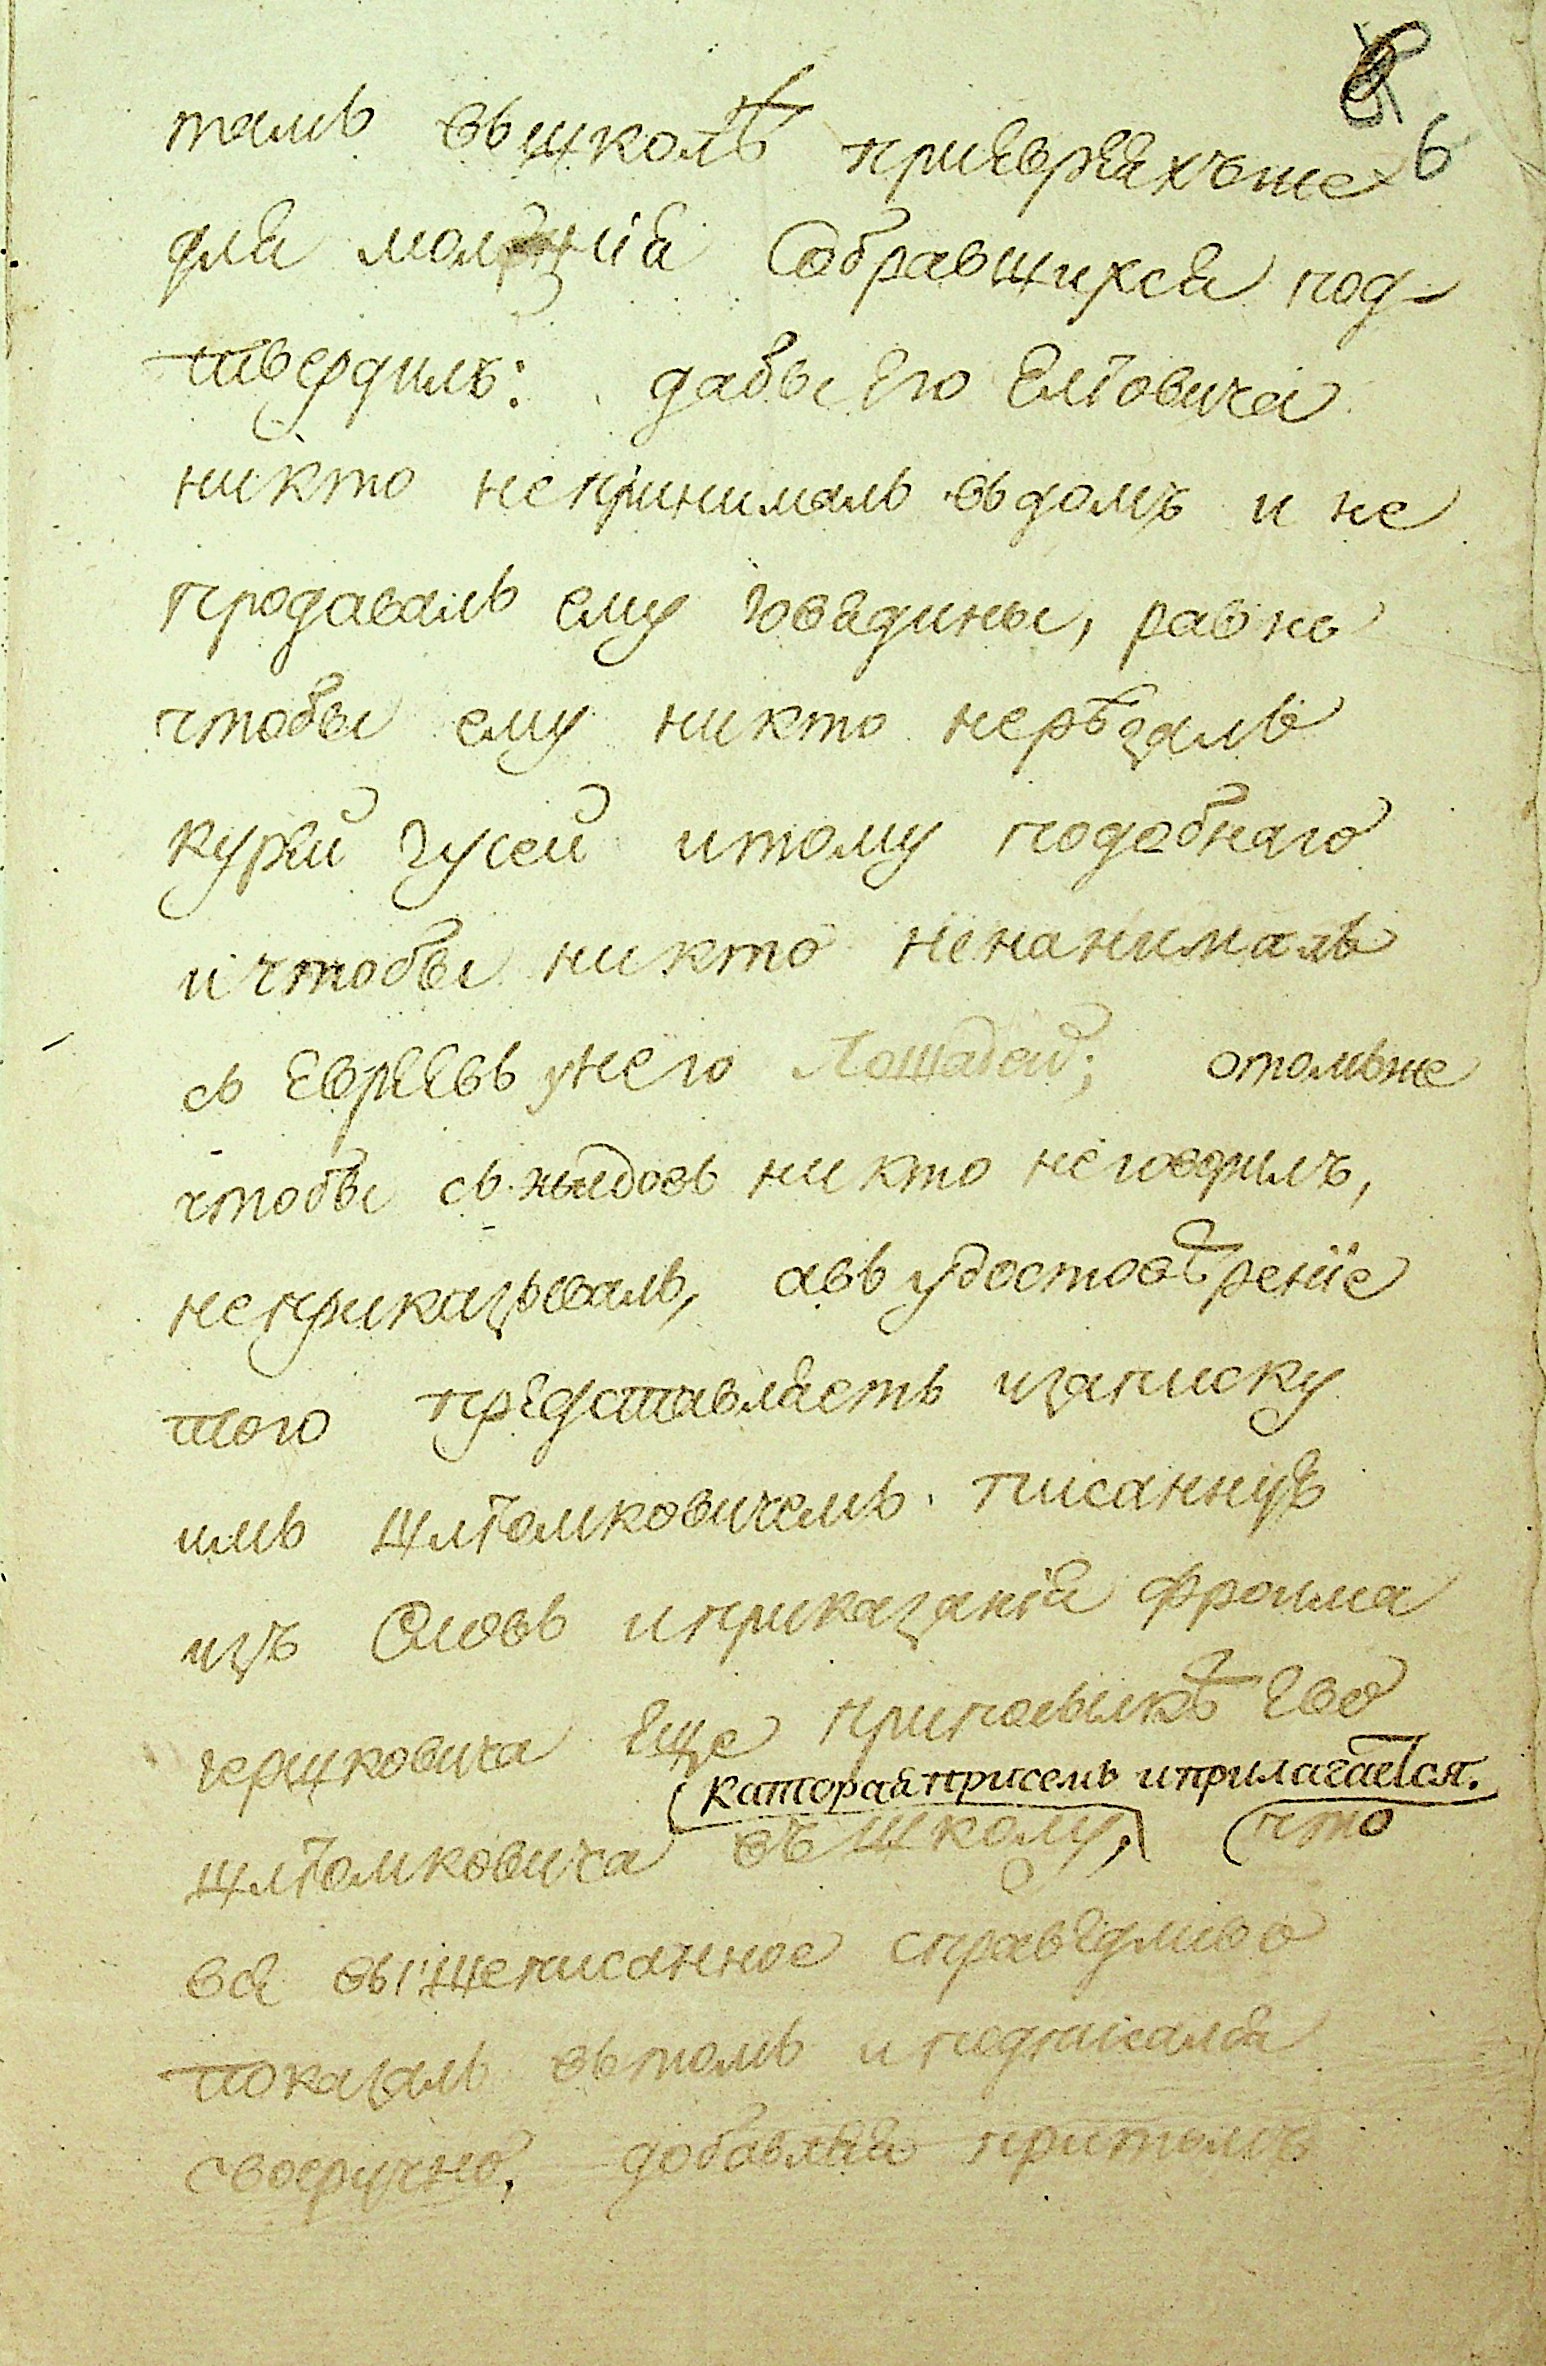 6
талъ въ школѣ при евреяхъ же
для моленія собравшихся под-
твердилъ: дабы его Елiовича
никто не принималъ въ домъ и не
продавалъ ему говядины, равно
чтобы ему никто не рѣзалъ
курей гусей и тому подобнаго
и чтобы никто не нанималъ
съ евреевъ у него лошадей; о томъ же
чтобы съ жидовъ никто не говорилъ,
не приказывалъ, а въ удостовѣреніе
того представляетъ и записку
имъ Шліомковичемъ писанную
изъ словъ и приказанія Фроима
Гершковича еще при посылкѣ его
которая при семъ и прилагается.
Шліомковича въ школу, что
вся вышеписанное справедливо
показалъ въ томъ и подписался
своеручно, добавляя при томъ